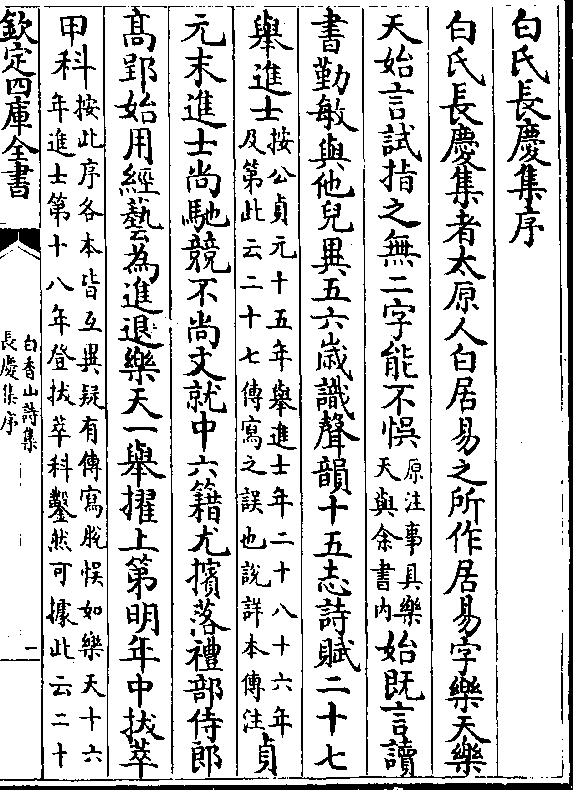 白氏長慶集序
白氏長慶集者太原人白居易之所作居易字樂天樂
天始言試指之無二字能不悞原注事具樂天與余書内始既言讀
書勤敏與他兒異五六歲識聲韻十五志詩賦二十七
舉進士按公貞元十五年舉進士年二十八十六年及第此云二十七傳寫之誤也說詳本傳注貞
元末進士尚馳競不尚文就中六籍尤擯落禮部侍郎
高郢始用經藝為進退樂天一舉擢上第明年中拔萃
甲科按此序各本皆互異疑有傳寫脫悞如樂天十六年進士第十八年登拔萃科鑿然可據此云二十
欽定四庫全書
白香山詩集
長慶集序
一